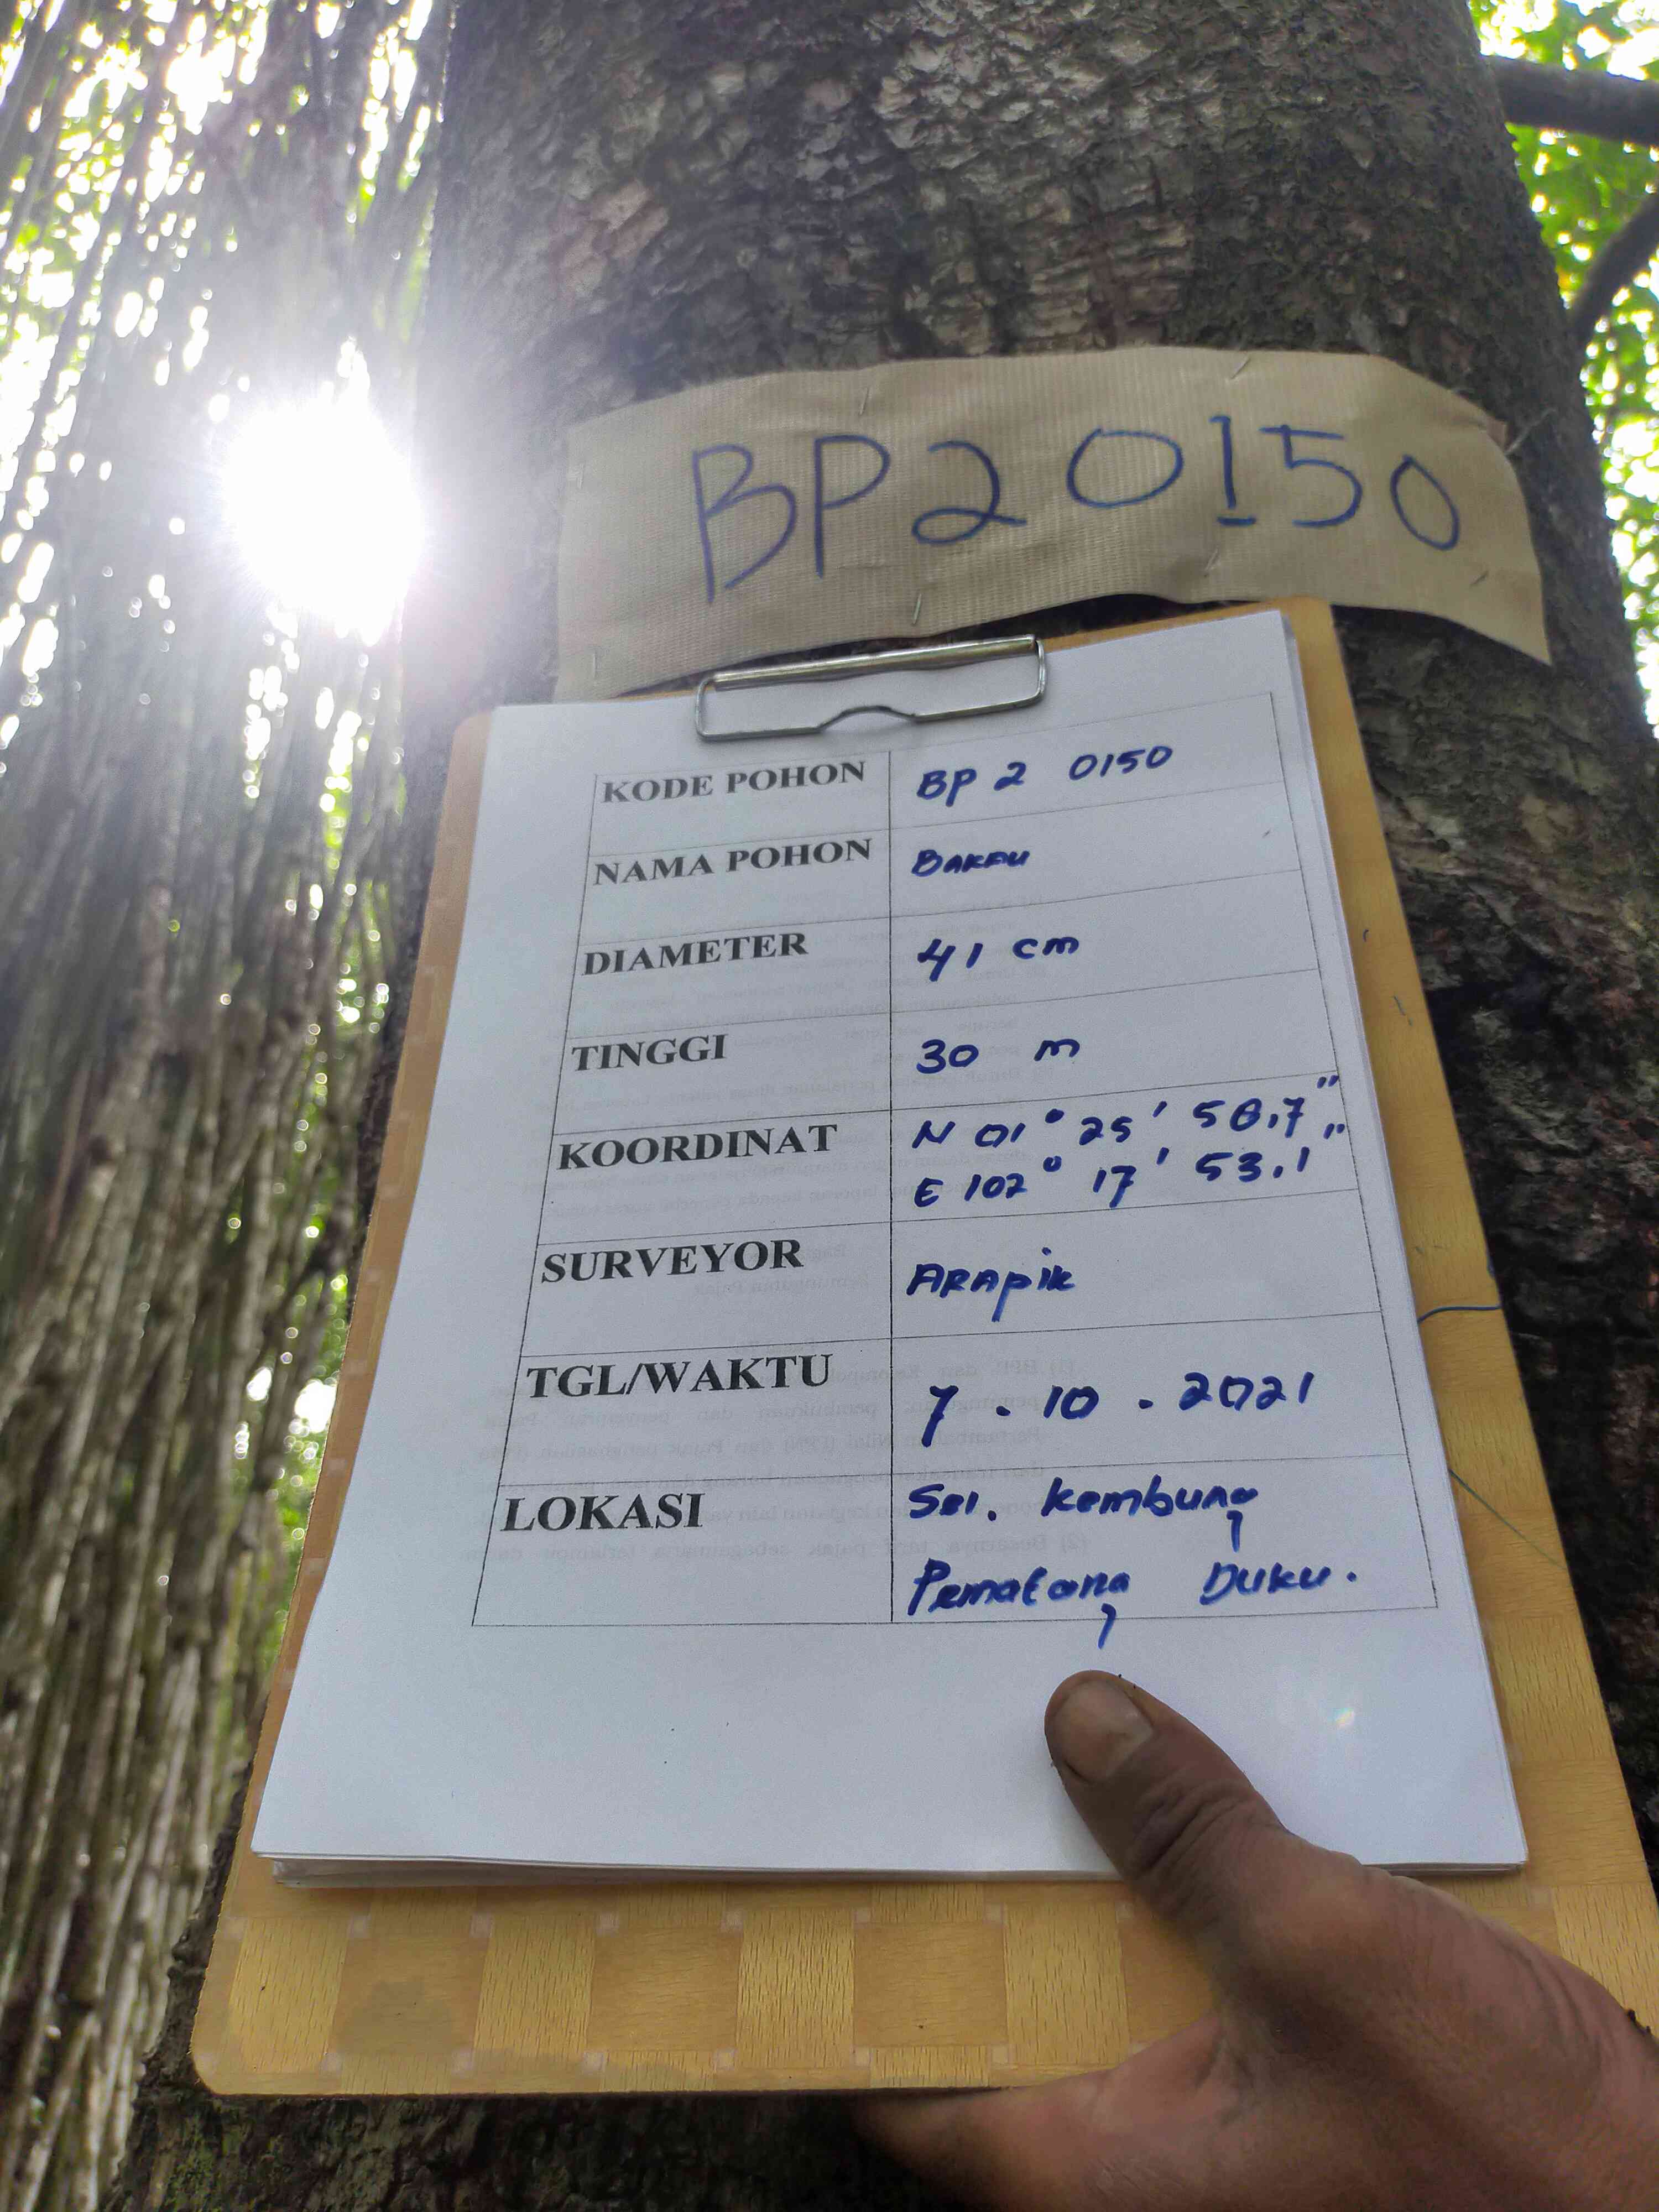 BP20150
KODE POHON BP 2 0150
NAMA POHON BAKAU
DIAMETER 41 cm
TINGGI 30 m
KOORDINAT N 01° 25' 58,7"
E 102° 17' 53.1"
SURVEYOR ARApik
TGL/WAKTU 7 . 10 . 2021
LOKASI Sei. Kembung
Pematang Duku.